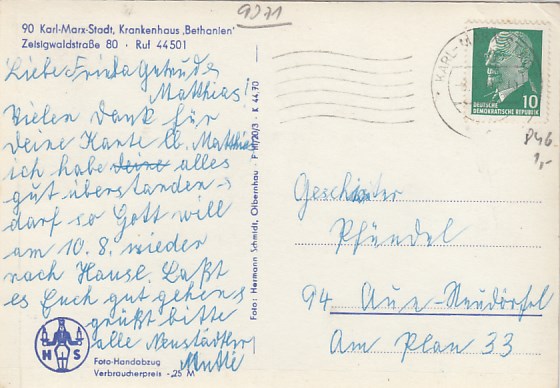 9271
90 Karl-Marx-Stadt, Krankenhaus „Bethanien“
Zeisigwaldstraße 80 · Ruf 44501
Liebe Frieda Gertrude
Matthias!
Vielen Dank für
Deine Karte lb. Matthias
ich habe deine alles
gut überstanden
darf so Gott will
am 10.8. wieder
nach Hause. Laßt
es Euch gut gehens
grüßt bitte
alle Neustädtler
Mutti
H S
Foto-Handabzug
Verbraucherpreis -,25 M
Foto: Hermann Schmidt, Olbernhau · F III/20/3 · K 44.70
KARL-M
10
DEUTSCHE
DEMOKRATISCHE REPUBLIK
P46
1,-
Geschwister
Pfündel
94 Aue-Neudörfel
Am Plan 33